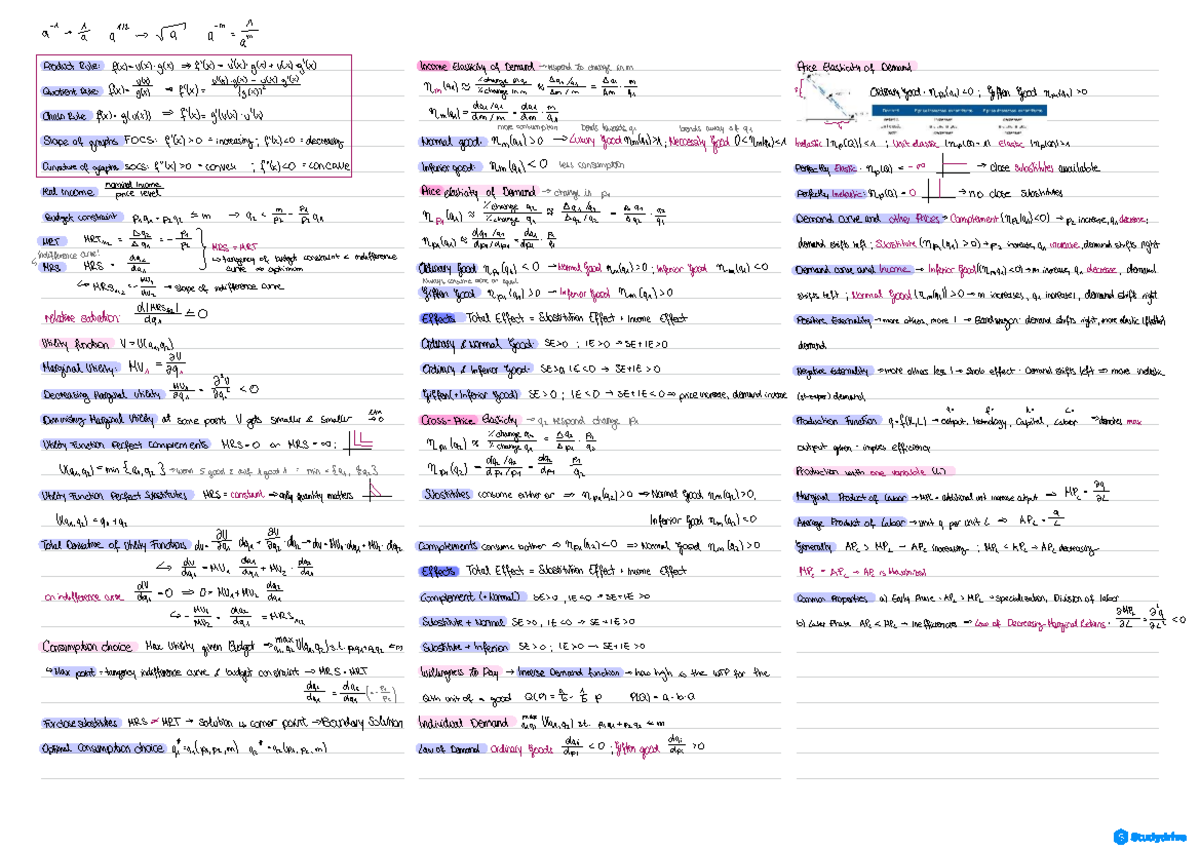 a⁻¹ → 1/a   a^(1/2) → √a   a^(-m) = 1/a^m
Product Rule: f(x) = u(x) · g(x) ⇒ f'(x) = u'(x) · g(x) + u(x) · g'(x)
Quotient Rule f(x) = u(x)/g(x) ⇒ f'(x) = u'(x) · g(x) - u(x) · g'(x) / (g(x))²
Chain Rule f(x) = g(u(x)) ⇒ f'(x) = g'(u(x)) · u'(x)
Slope of graphs FOCS: f'(x) > 0 = increasing ; f'(x) < 0 = decreasing
Curvature of graphs SOCS: f''(x) > 0 = convex ; f''(x) < 0 = concave
Real Income nominal income / price level
Budget constraint p₁q₁ + p₂q₂ ≤ m → q₂ ≤ m/p₂ - p₁/p₂ q₁
MRT MRT₁₂ = Δq₂/Δq₁ = - p₁/p₂
MRS = MRT
Indifference curve!
↳ tangency of budget constraint & indifference
curve ⇒ optimum
MRS MRS = dq₂/dq₁
↳ MRS₁₂ = - MU₁/MU₂ → slope of indifference curve
relative satiation d|MRS₁₂|/dq₁ ≤ 0
Utility function U = U(q₁, q₂)
Marginal Utility: MU₁ = ∂U/∂q₁
Decreasing Marginal Utility
Diminishing Marginal Utility at some point U gets smaller & smaller lim → 0
Utility Function Perfect Complements MRS = 0 or MRS = ∞ ;
U(q₁, q₂) = min {q₁, q₂}
Utility Function Perfect Substitutes MRS = constant ⇒ only quantity matters
U(q₁, q₂) = q₁ + q₂
Total Derivative of Utility Functions dU = ∂U/∂q₁ dq₁ + ∂U/∂q₂ dq₂ → dU = MU₁ dq₁ + MU₂ dq₂
↳ dU/dq₁ = MU₁ dq₁/dq₁ + MU₂ · dq₂/dq₁
on indifference curve dU/dq₁ = 0 ⇒ 0 = MU₁ + MU₂ dq₂/dq₁
↳ - MU₁/MU₂ = dq₂/dq₁ = MRS₁₂
Consumption choice Max Utility given Budget ⇒ max q₁,q₂ U(q₁, q₂) s.t. p₁q₁ + p₂q₂ ≤ m
↳ Max point = tangency indifference curve & budget constraint → MRS = MRT
dq₂/dq₁ = dq₂/dq₁ (- p₁/p₂)
For close substitutes MRS ≠ MRT → solution is corner point → Boundary Solution
Optimal Consumption choice q₁* = q₁(p₁, p₂, m) q₂* = q₂(p₁, p₂, m)
Income Elasticity of Demand → respond to change in m
η_m(q₁) ≈ % change in q₁ / % change in m ≈ Δq₁/q₁ / Δm/m = Δq₁/Δm · m/q₁
η_m(q₁) = dq₁/q₁ / dm/m = dq₁/dm · m/q₁
more consumption   bends towards q₁   bends away of q₁
Normal good: η_m(q₁) > 0 → Luxury Good η_m(q₁) > 1 ; Necessity Good 0 < η_m(q₁) < 1
Inferior good: η_m(q₁) < 0 less consumption
Price elasticity of Demand → change in p₁
η_p₁(q₁) ≈ % change q₁ / % change
η_p₁(q₁) = dq₁/q₁ / dp₁/p₁ = dq₁/dp₁ · p₁/q₁
Ordinary Good η_p₁(q₁) < 0 → Normal Good η_m(q₁) > 0 ; Inferior Good η_m(q₁) < 0
Always consume more or equal
Giffen Good η_p₁(q₁) > 0 → Inferior Good η_m(q₁) > 0
Effects Total Effect = Substitution Effect + Income Effect
Ordinary & Normal Good: SE > 0 ; IE > 0 → SE + IE > 0
Ordinary & Inferior Good: SE > 0, IE < 0 → SE + IE > 0
Giffen (+ Inferior Good) SE > 0 ; IE < 0 → SE + IE < 0 ⇒ price increase, demand increase
Cross-Price Elasticity → q₂ respond change p₁
Substitutes consume either or ⇒ η_p₁(q₂) > 0 → Normal Good η_m(q₂) > 0,
Inferior Good η_m(q₂) < 0
Complements consume both → η_p₁(q₂) < 0 ⇒ Normal Good η_m(q₂) > 0
Effects Total Effect = Substitution Effect + Income Effect
Complement (+ Normal) SE > 0, IE < 0 → SE + IE > 0
Substitute + Normal SE > 0, IE < 0 → SE + IE > 0
Substitute + Inferior SE > 0 ; IE > 0 → SE + IE > 0
Willingness to Pay → Inverse Demand function → how high is the WTP for the
Qth unit of a good Q(P) = a/b - 1/b p P(Q) = a - b · Q
Individual Demand max q₁,q₂ U(q₁, q₂) s.t. p₁q₁ + p₂q₂ ≤ m
Law of Demand Ordinary Goods dq₁/dp₁ < 0 ; Giffen good dq₁/dp₁ > 0
Price Elasticity of Demand
Ordinary Good: η_p₁(q₁) < 0 ; Giffen Good η_p₁(q₁) > 0
Inelastic |η_p(Q)| < 1 ; Unit elastic |η_p(Q)| = 1 elastic |η_p(Q)| > 1
Perfectly Elastic: η_p(Q) = -∞ → close substitutes available
Perfectly Inelastic: η_p(Q) = 0 → no close substitutes
Demand curve and other Prices → Complement (η_p₂(q₁) < 0) → p₂ increase, q₁ decrease ;
demand shifts left ; Substitute (η_p₂(q₁) > 0) → p₂ increase, q₁ increase, demand shifts right
Demand curve and Income → Inferior Good (η_m(q₁) < 0) → m increase, q₁ decrease, demand
shifts left ; Normal Good (η_m(q₁) > 0) → m increases, q₁ increase, demand shift right
Positive Externality → more others, more I → Bandwagon: demand shifts right, more elastic (flatter)
demand
Negative Externality → more others less I → Snob effect: Demand shifts left ⇒ more inelastic
(steeper) demand
Production Function q = f(K, L) → output, technology, Capital, Labor → denotes max
output given inputs efficiency
Production with one variable (L)
Marginal Product of Labor → MPL = additional unit increase output ⇒ MP_L = ∂q/∂L
Average Product of Labour → unit q per unit L ⇒ AP_L = q/L
Generally AP_L > MP_L → AP_L increasing ; MP_L < AP_L → AP_L decreasing
MP_L = AP_L → AP_L is Maximized
Common Properties a) Early Phase AP_L > MP_L → specialization, Division of labor
b) Later Phase AP_L < MP_L → inefficiencies ⇒ Law of Decreasing Marginal Returns = ∂MP_L/∂L = ∂²q/∂L² < 0
Studydrive